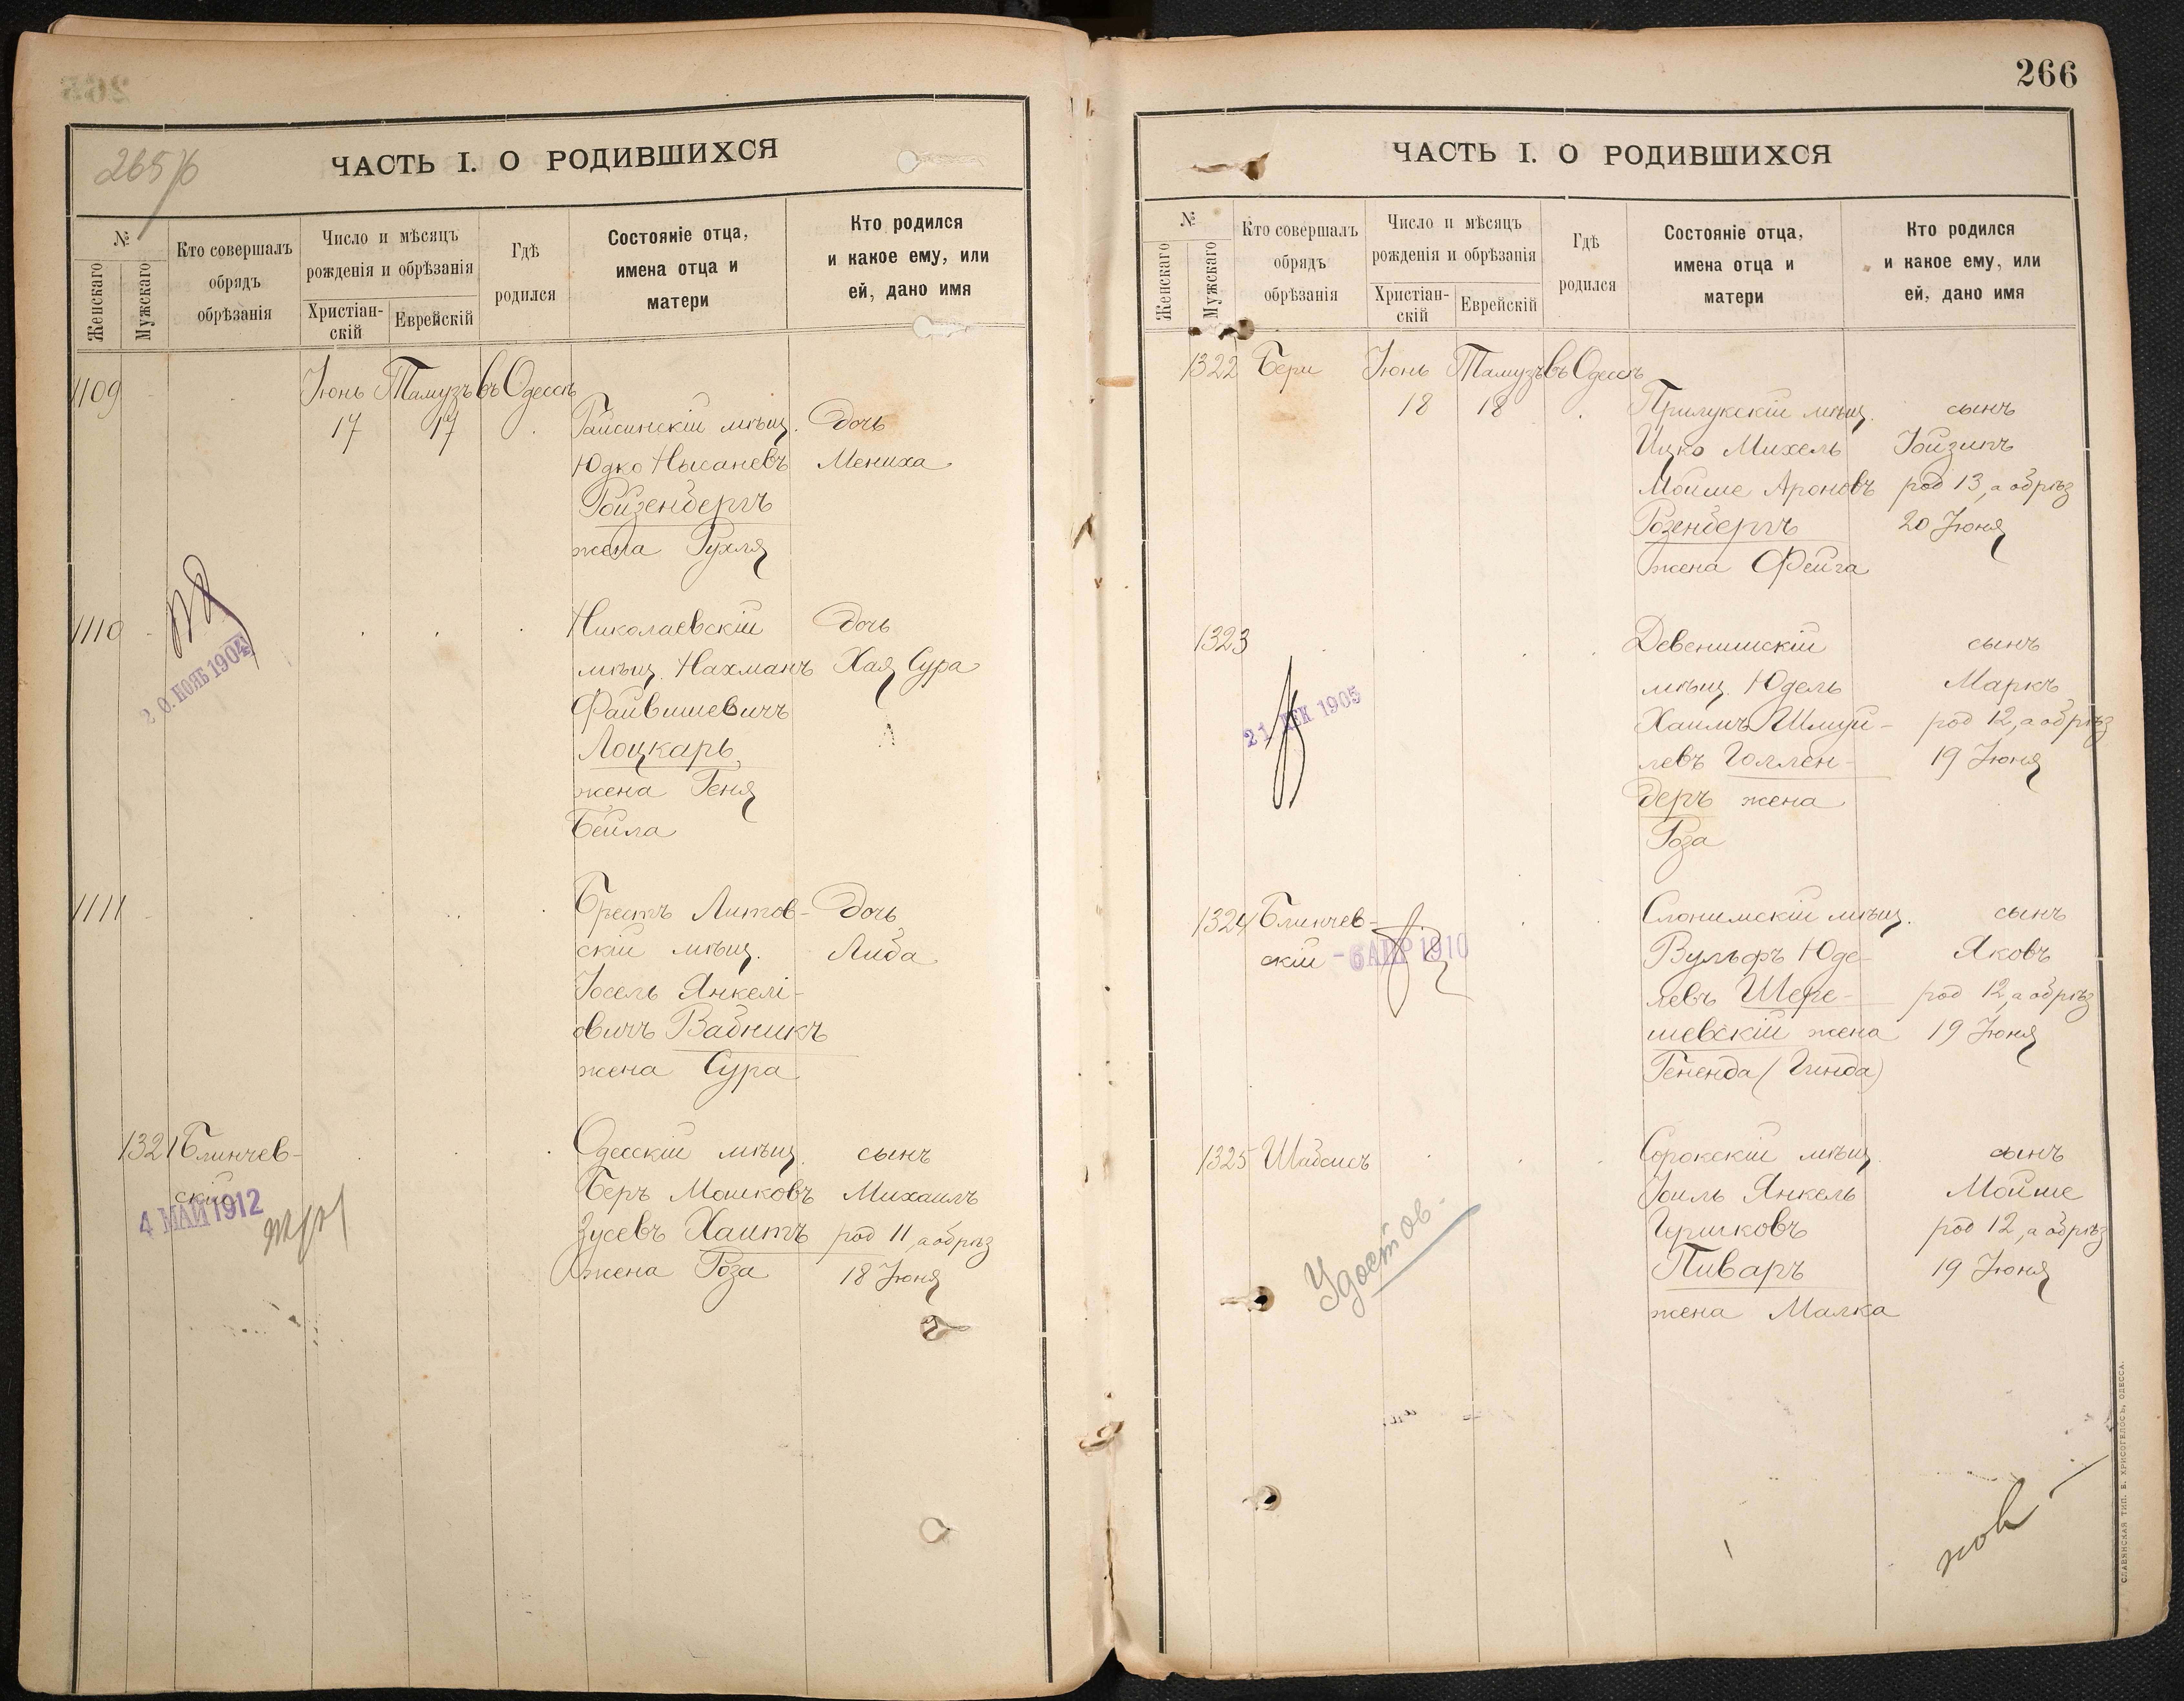 265/6
ЧАСТЬ I. О РОДИВШИХСЯ
№
Женскаго
Мужскаго
Кто совершалъ
обрядъ
обрѣзанія
Число и мѣсяцъ
рожденія и обрѣзанія
Христіан-
скій
Еврейскій
Гдѣ
родился
Состояніе отца,
имена отца и
матери
Кто родился
и какое ему, или
ей, дано имя
1109
Іюнь Тамузъ въ Одессѣ
17 17
Гайсинскій мѣщ. Дочь
Юдко Нысаневъ Мениха
Ройзенбергъ
жена Рухля
1110
20. НОЯБ 1904
Николаевскій Дочь
мѣщ. Нахманъ Хая Сура
Файвишевичъ
Лоцкарь
жена Геня
Бейла
1111
Брестъ Литов- Дочь
скій мѣщ. Либа
Іосель Янкелі-
овичъ Вабникъ
жена Сура
1321 Блинчев-
скій
4 МАЙ 1912
Одесскій мѣщ. сынъ
Беръ Мошковъ Михаилъ
Зусевъ Хаитъ род 11, а обрѣз
жена Роза 18 Іюня
266
ЧАСТЬ I. О РОДИВШИХСЯ
№
Женскаго
Мужскаго
Кто совершалъ
обрядъ
обрѣзанія
Число и мѣсяцъ
рожденія и обрѣзанія
Христіан-
скій
Еврейскій
Гдѣ
родился
Состояніе отца,
имена отца и
матери
Кто родился
и какое ему, или
ей, дано имя
1322 Бери Іюнь Тамузъ въ Одессѣ
18 18
Прилукскій мѣщ. сынъ
Ицко Михель Іойзипъ
Мойше Ароновъ род 13, а обрѣз
Розенбергъ 20 Іюня
жена Фейга
1323
21 ДЕК 1905
Девенишскій сынъ
мѣщ. Юдель Маркъ
Хаимъ Шмуй- род 12, а обрѣз
левъ Голлен- 19 Іюня
деръ жена
Роза
1324 Блинчев-
скій
- 6 АПР 1910
Слонимскій мѣщ. сынъ
Вульфъ Юде- Яковъ
левъ Шере- род 12, а обрѣз
шевскій жена 19 Іюня
Гененда (Гинда)
1325 Шабсисъ
Удостов.
Сорокскій мѣщ. сынъ
Іоиль Янкель Мойше
Гершковъ род 12, а обрѣз
Пиваръ 19 Іюня
жена Малка
СЛАВЯНСКАЯ ТИП. Е. ХРИСОГЕЛОСЪ, ОДЕССА.